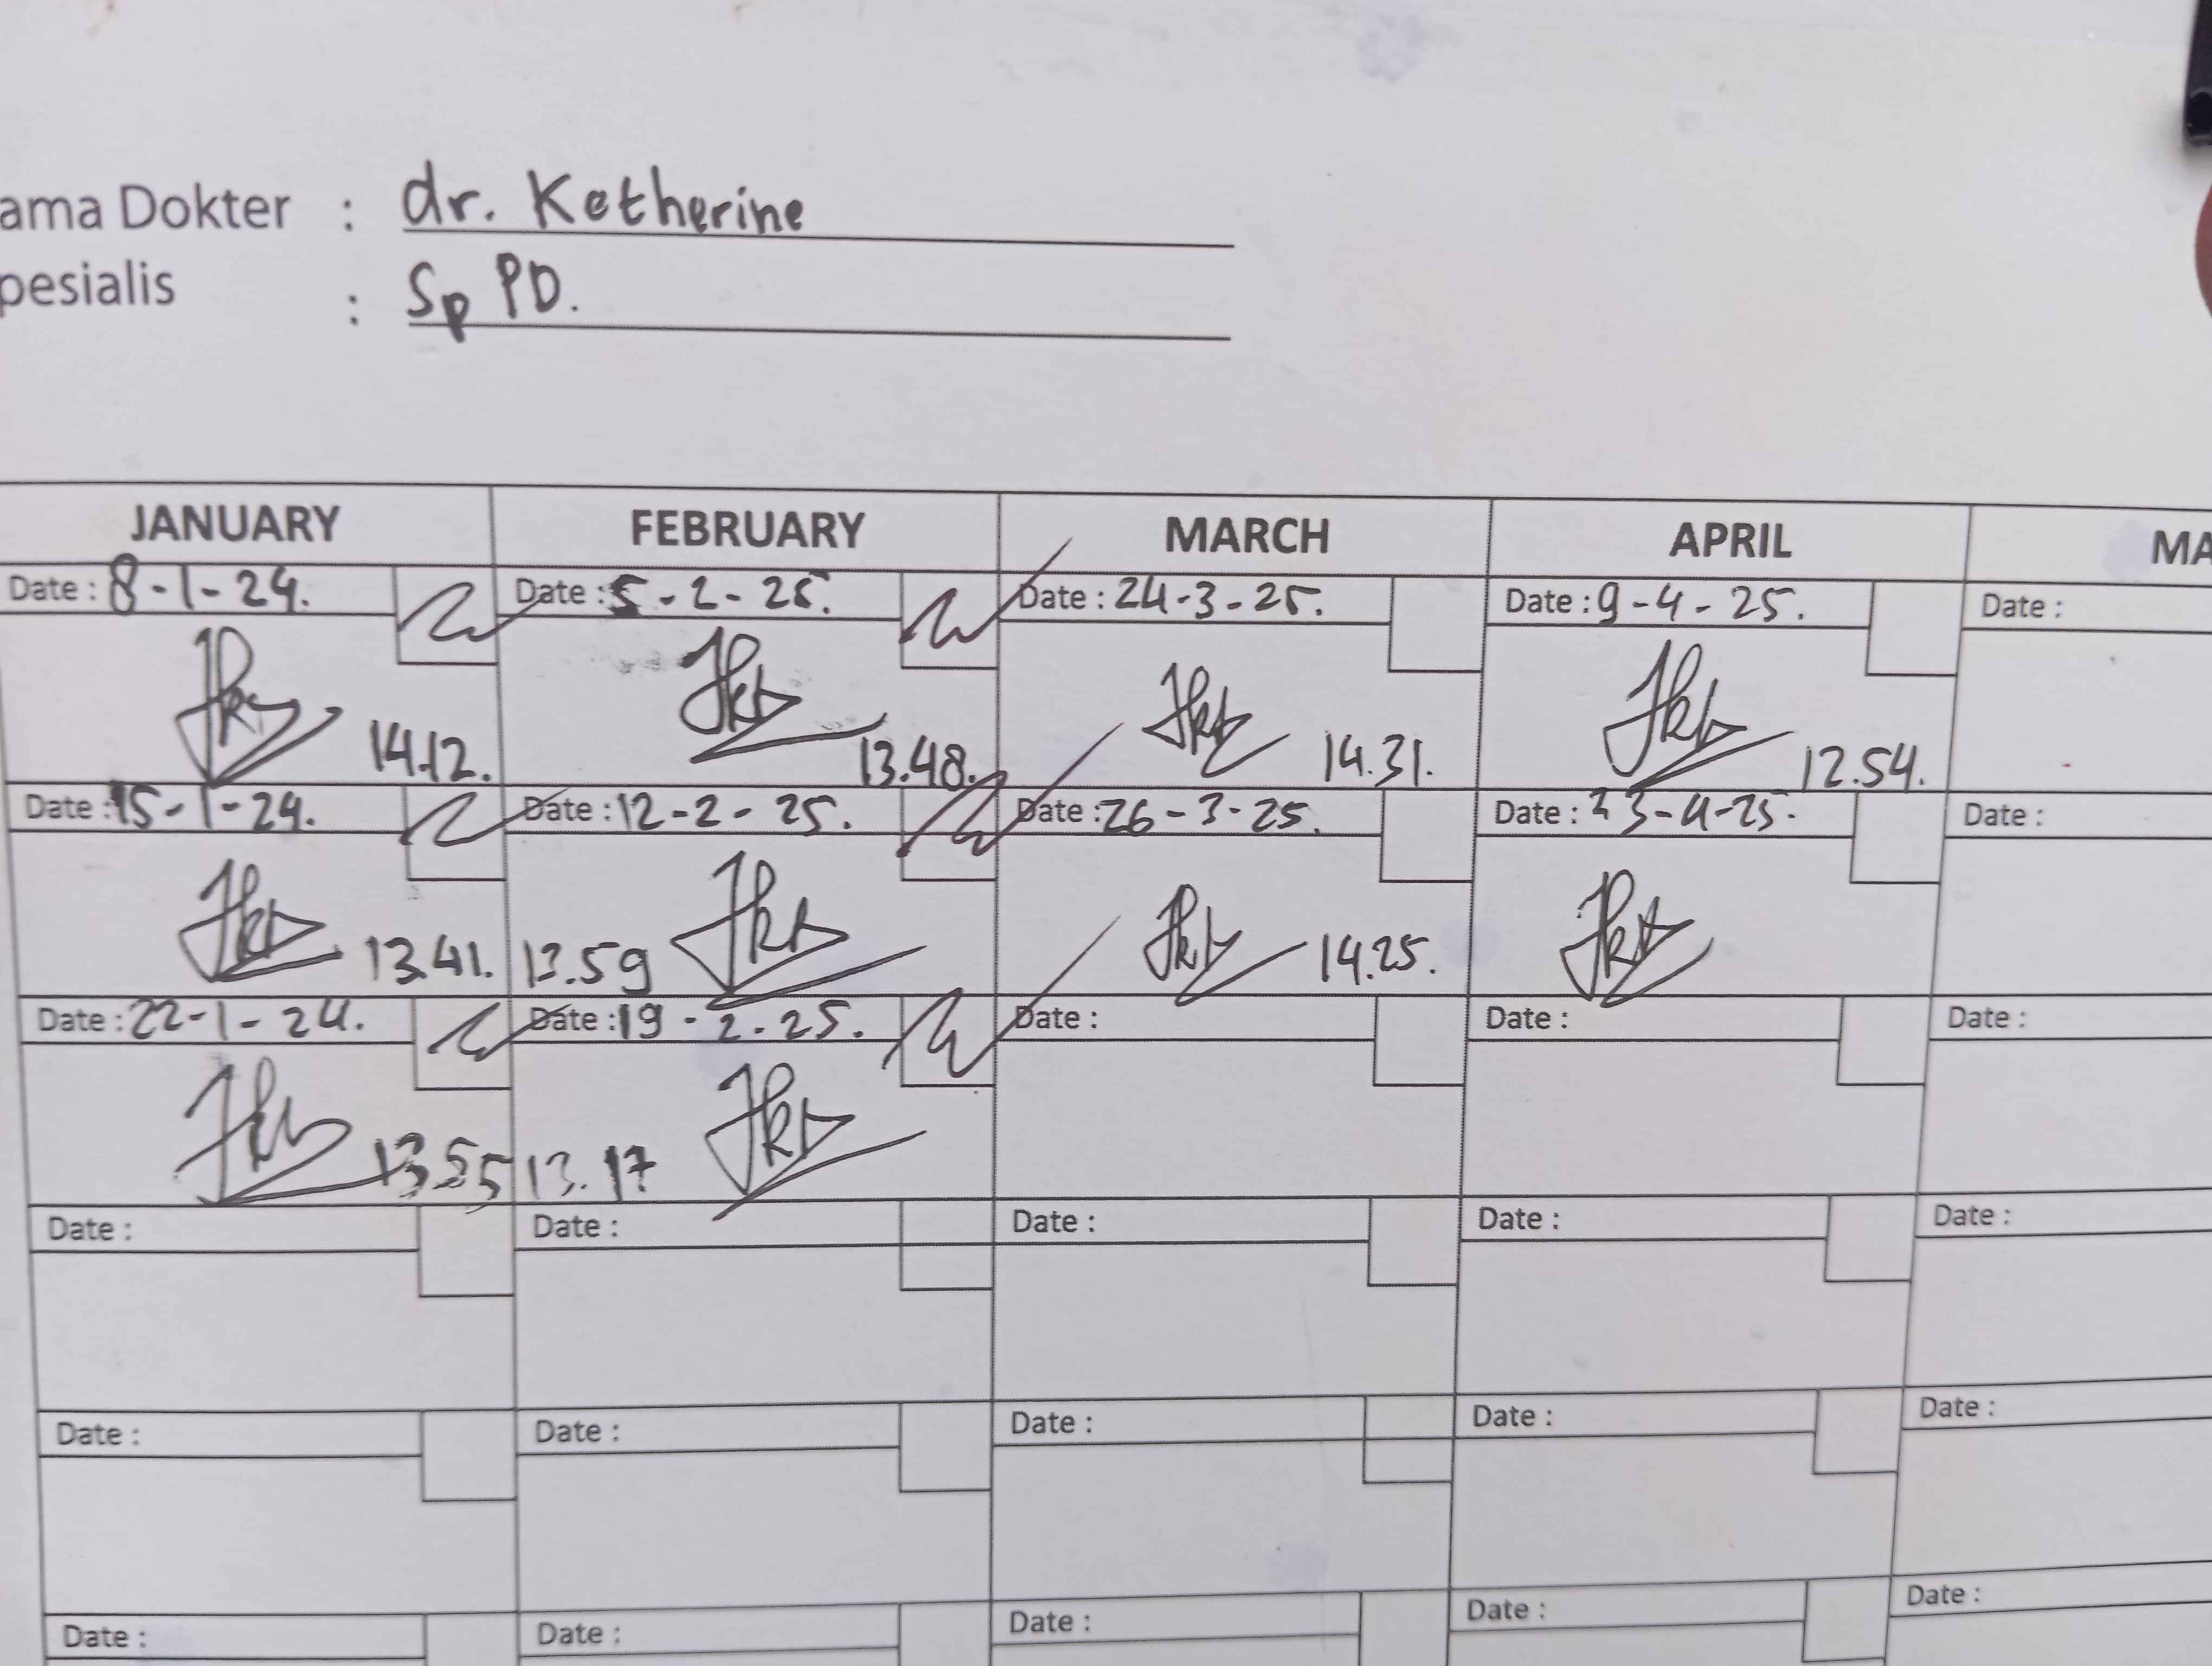 ama Dokter : dr. Katherine
pesialis : Sp PD.
JANUARY FEBRUARY MARCH APRIL MA
Date : 8-1-24. Date : 5-2-25. Date : 24-3-25. Date : 9-4-25. Date :
14.12. 13.48. 14.31. 12.54.
Date : 15-1-24. Date : 12-2-25. Date : 26-3-25. Date : 23-4-25. Date :
13.41. 13.59 14.25.
Date : 22-1-24. Date : 19-2-25. Date : Date : Date :
13.55 13.17
Date : Date : Date : Date : Date :
Date : Date : Date : Date : Date :
Date : Date : Date : Date : Date :